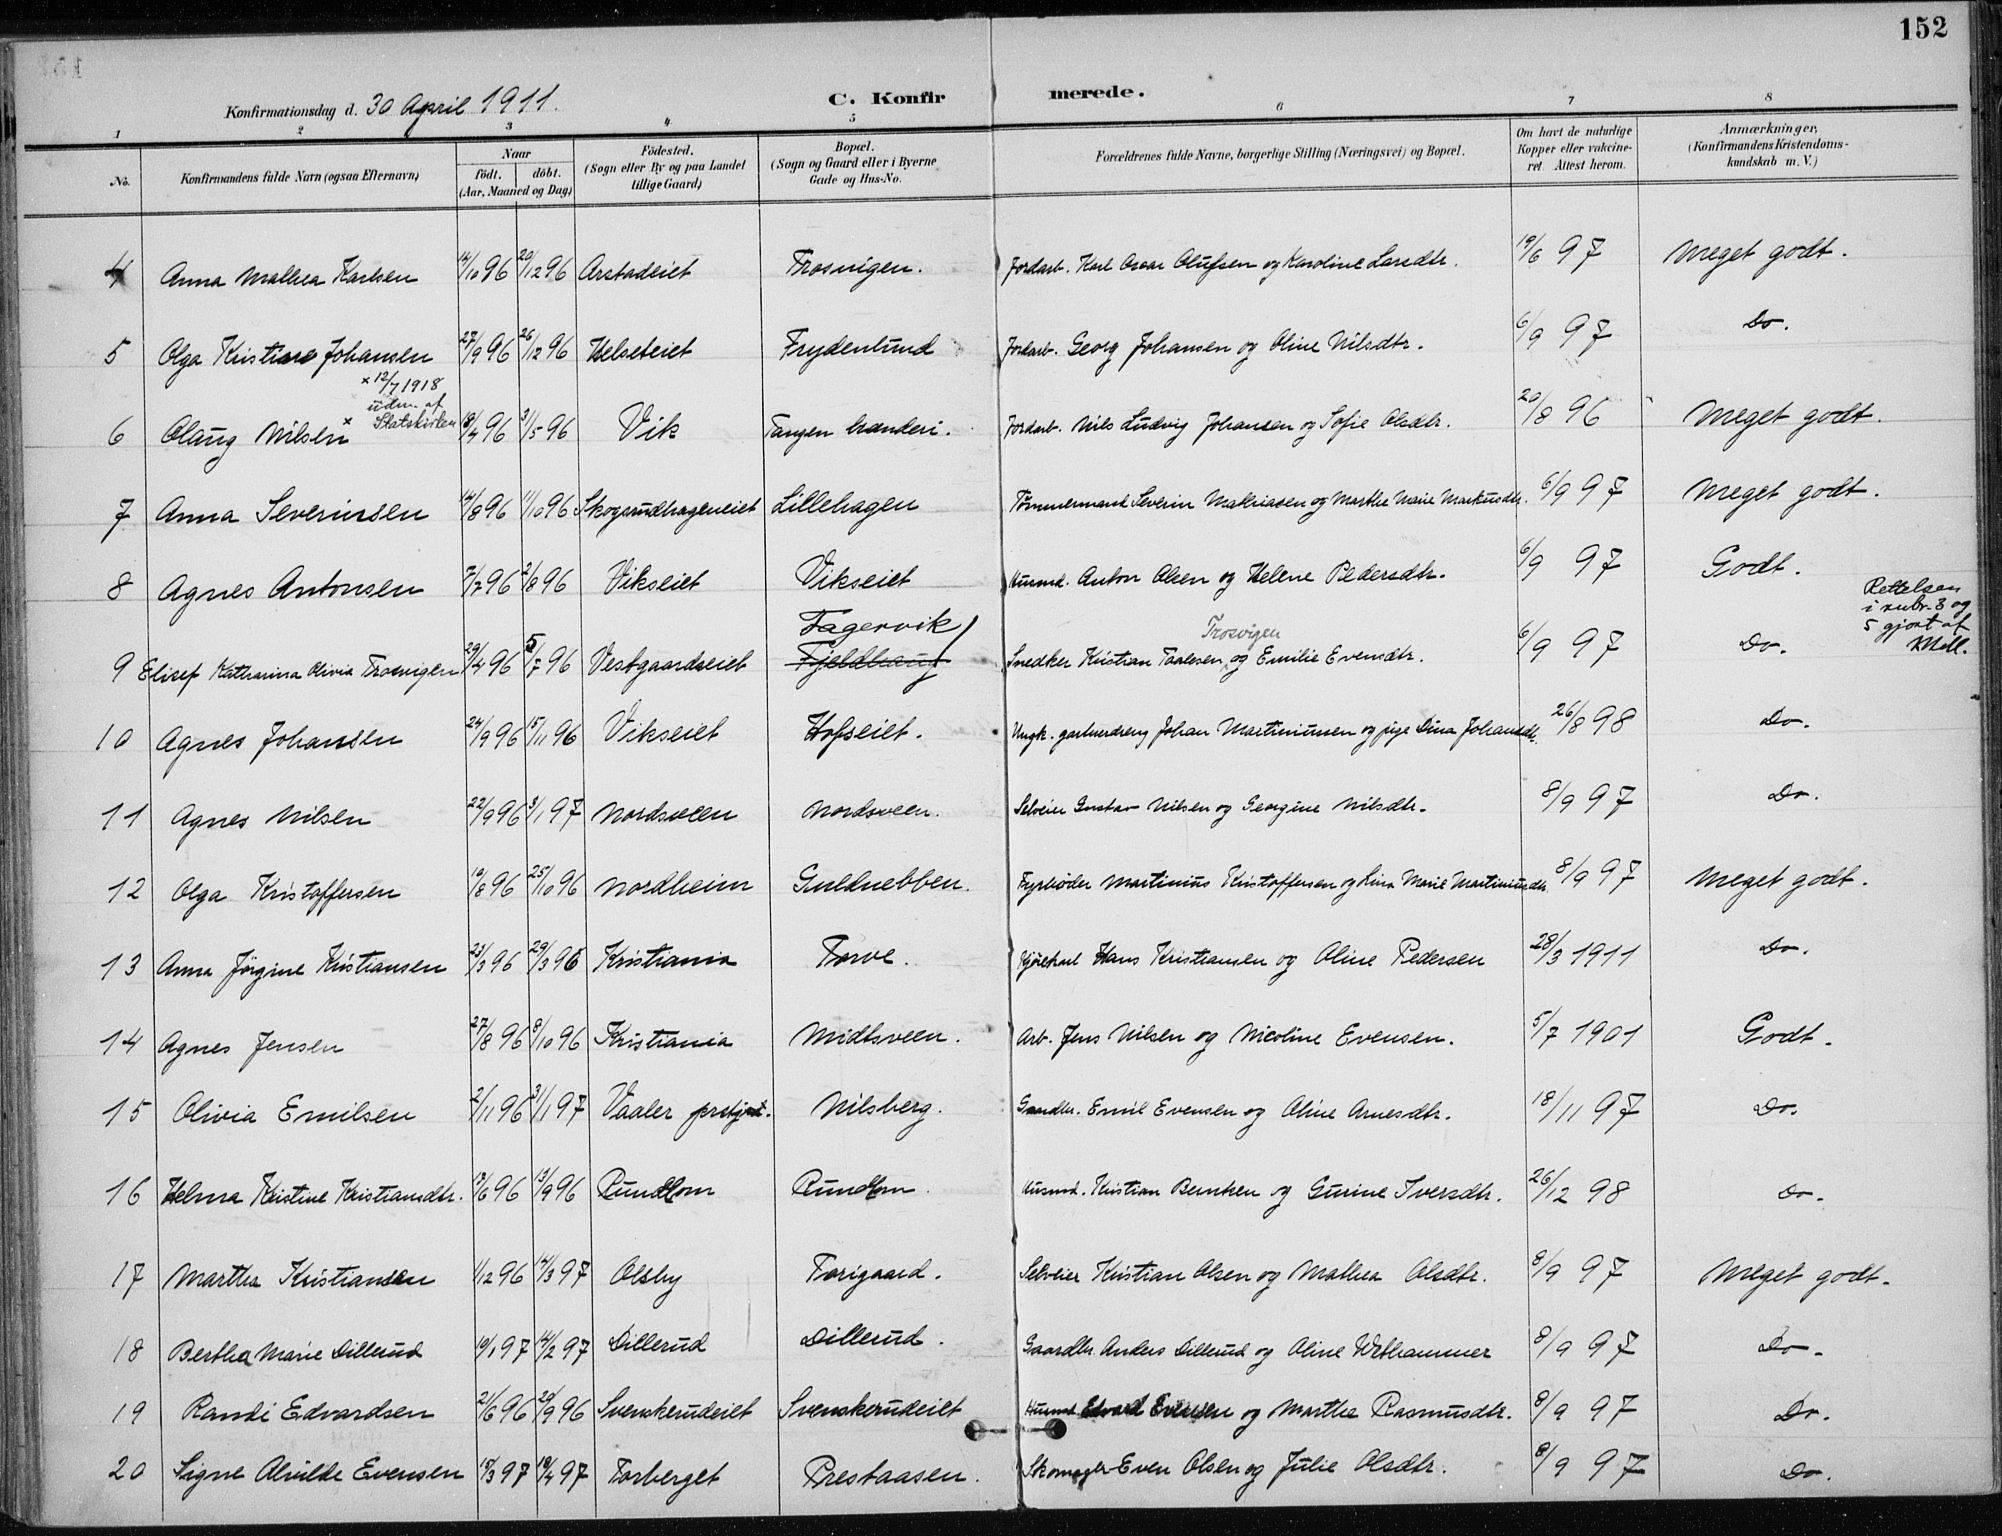 152
Konfirmationsdag d. 30 April 1911.
C. Konfirmerede.
1 2 3 4 5 6 7 8
No. Konfirmandens fulde Navn (ogsaa Efternavn) Naar födt. döbt. (Aar, Maaned og Dag) Födested. (Sogn eller By og paa Landet tillige Gaard) Bopæl. (Sogn og Gaard eller i Byerne Gade og Hus-No. Forældrenes fulde Navne, borgerlige Stilling (Næringsvei) og Bopæl. Om havt de naturlige Kopper eller vakcineret Attest herom. Anmærkninger, (Konfirmandens Kristendomskundskab m. V.)
4 Anna Mathea Karlsen 14/10 96 20/12 96 Arstadeiet Trosvigen. Jordarb. Karl Oscar Olufsen og Karoline Larsdtr. 19/6 97 Meget godt.
5 Olga Kristiane Johansen 27/9 96 26/12 96 Helseteiet Frydenlund Jordarb. Georg Johansen og Oline Nilsdtr. 6/9 97 Do.
x 12/7 1918
udm. af
Statskirken
6 Olaug Nilsen x 18/4 96 3/5 96 Vik Tangen brænderi. Jordarb. Nils Ludvig Johansen og Sofie Olsdtr. 20/8 96 Meget godt.
7 Anna Severinsen 14/8 96 11/10 96 Skogsrudhageneiet Lillehagen Tømmermand Severin Mathiasen og Marthe Marie Markusdtr. 6/9 97 Meget godt.
8 Agnes Antonsen 7/7 96 2/8 96 Vikseiet Vikseiet Husmd. Anton Olsen og Helene Pedersdtr. 6/9 97 Godt.
Rettelsen
i rubr. 3 og
5 gjort af
Fagervik
Trosvigen
9 Elisef Katharina Olivia Trosvigen 29/4 96 5/7 96 Vestgaardseiet Fjeldhaug Snedker Kristian Taalesen og Emilie Evensdtr. 6/9 97 Do.
10 Agnes Johansen 24/9 96 15/11 96 Vikseiet Hofseiet. Ungk. gartnerdreng Johan Martiniussen og pige Dina Johansdtr. 26/8 98 Do.
11 Agnes Nilsen 22/9 96 3/1 97 Nordsveen Nordsveen. Selveier Gustav Nilsen og Georgine Nilsdtr. 8/9 97 Do.
12 Olga Kristoffersen 19/8 96 25/10 96 Nordheim Guldnebben. Fyrbøder Martinius Kristoffersen og Lina Marie Martiniusdtr. 8/9 97 Meget godt.
13 Anna Jörgine Kristiansen 23/3 96 29/3 96 Kristiania Torve. Kjörekarl Hans Kristiansen og Oline Pedersen 28/3 1911 Do.
14 Agnes Jensen 27/8 96 8/10 96 Kristiania Midtsveen. Arb. Jens Nilsen og Nicoline Evensen. 5/7 1901 Godt.
15 Olivia Emilsen 2/11 96 3/1 97 Vaaler prstgjd. Nilsberg. Gaardbr. Emil Evensen og Oline Arnesdtr. 18/11 97 Do.
16 Helma Kristine Kristiansdtr. 17/6 96 13/9 96 Rundtom Rundtom. Husmd. Kristian Berntsen og Gurine Iversdtr. 26/12 98 Do.
17 Martha Kristiansen 1/12 96 14/3 97 Olsby Torigaard. Selveier Kristian Olsen og Mathea Olsdtr. 8/9 97 Meget godt.
18 Bertha Marie Dillerud 10/1 97 14/2 97 Dillerud Dillerud. Gaardbr. Anders Dillerud og Oline Wethammer 8/9 97 Do.
19 Randi Edvardsen 21/6 96 20/9 96 Svenskerudeiet Svenskerudeiet Husmd. Edvard Evensen og Marthe Rasmusdtr. 8/9 97 Do.
20 Signe Alvilde Evensen 15/3 97 18/4 97 Torberget Prestaasen. Skomager Even Olsen og Julie Olsdtr. 8/9 97 Do.